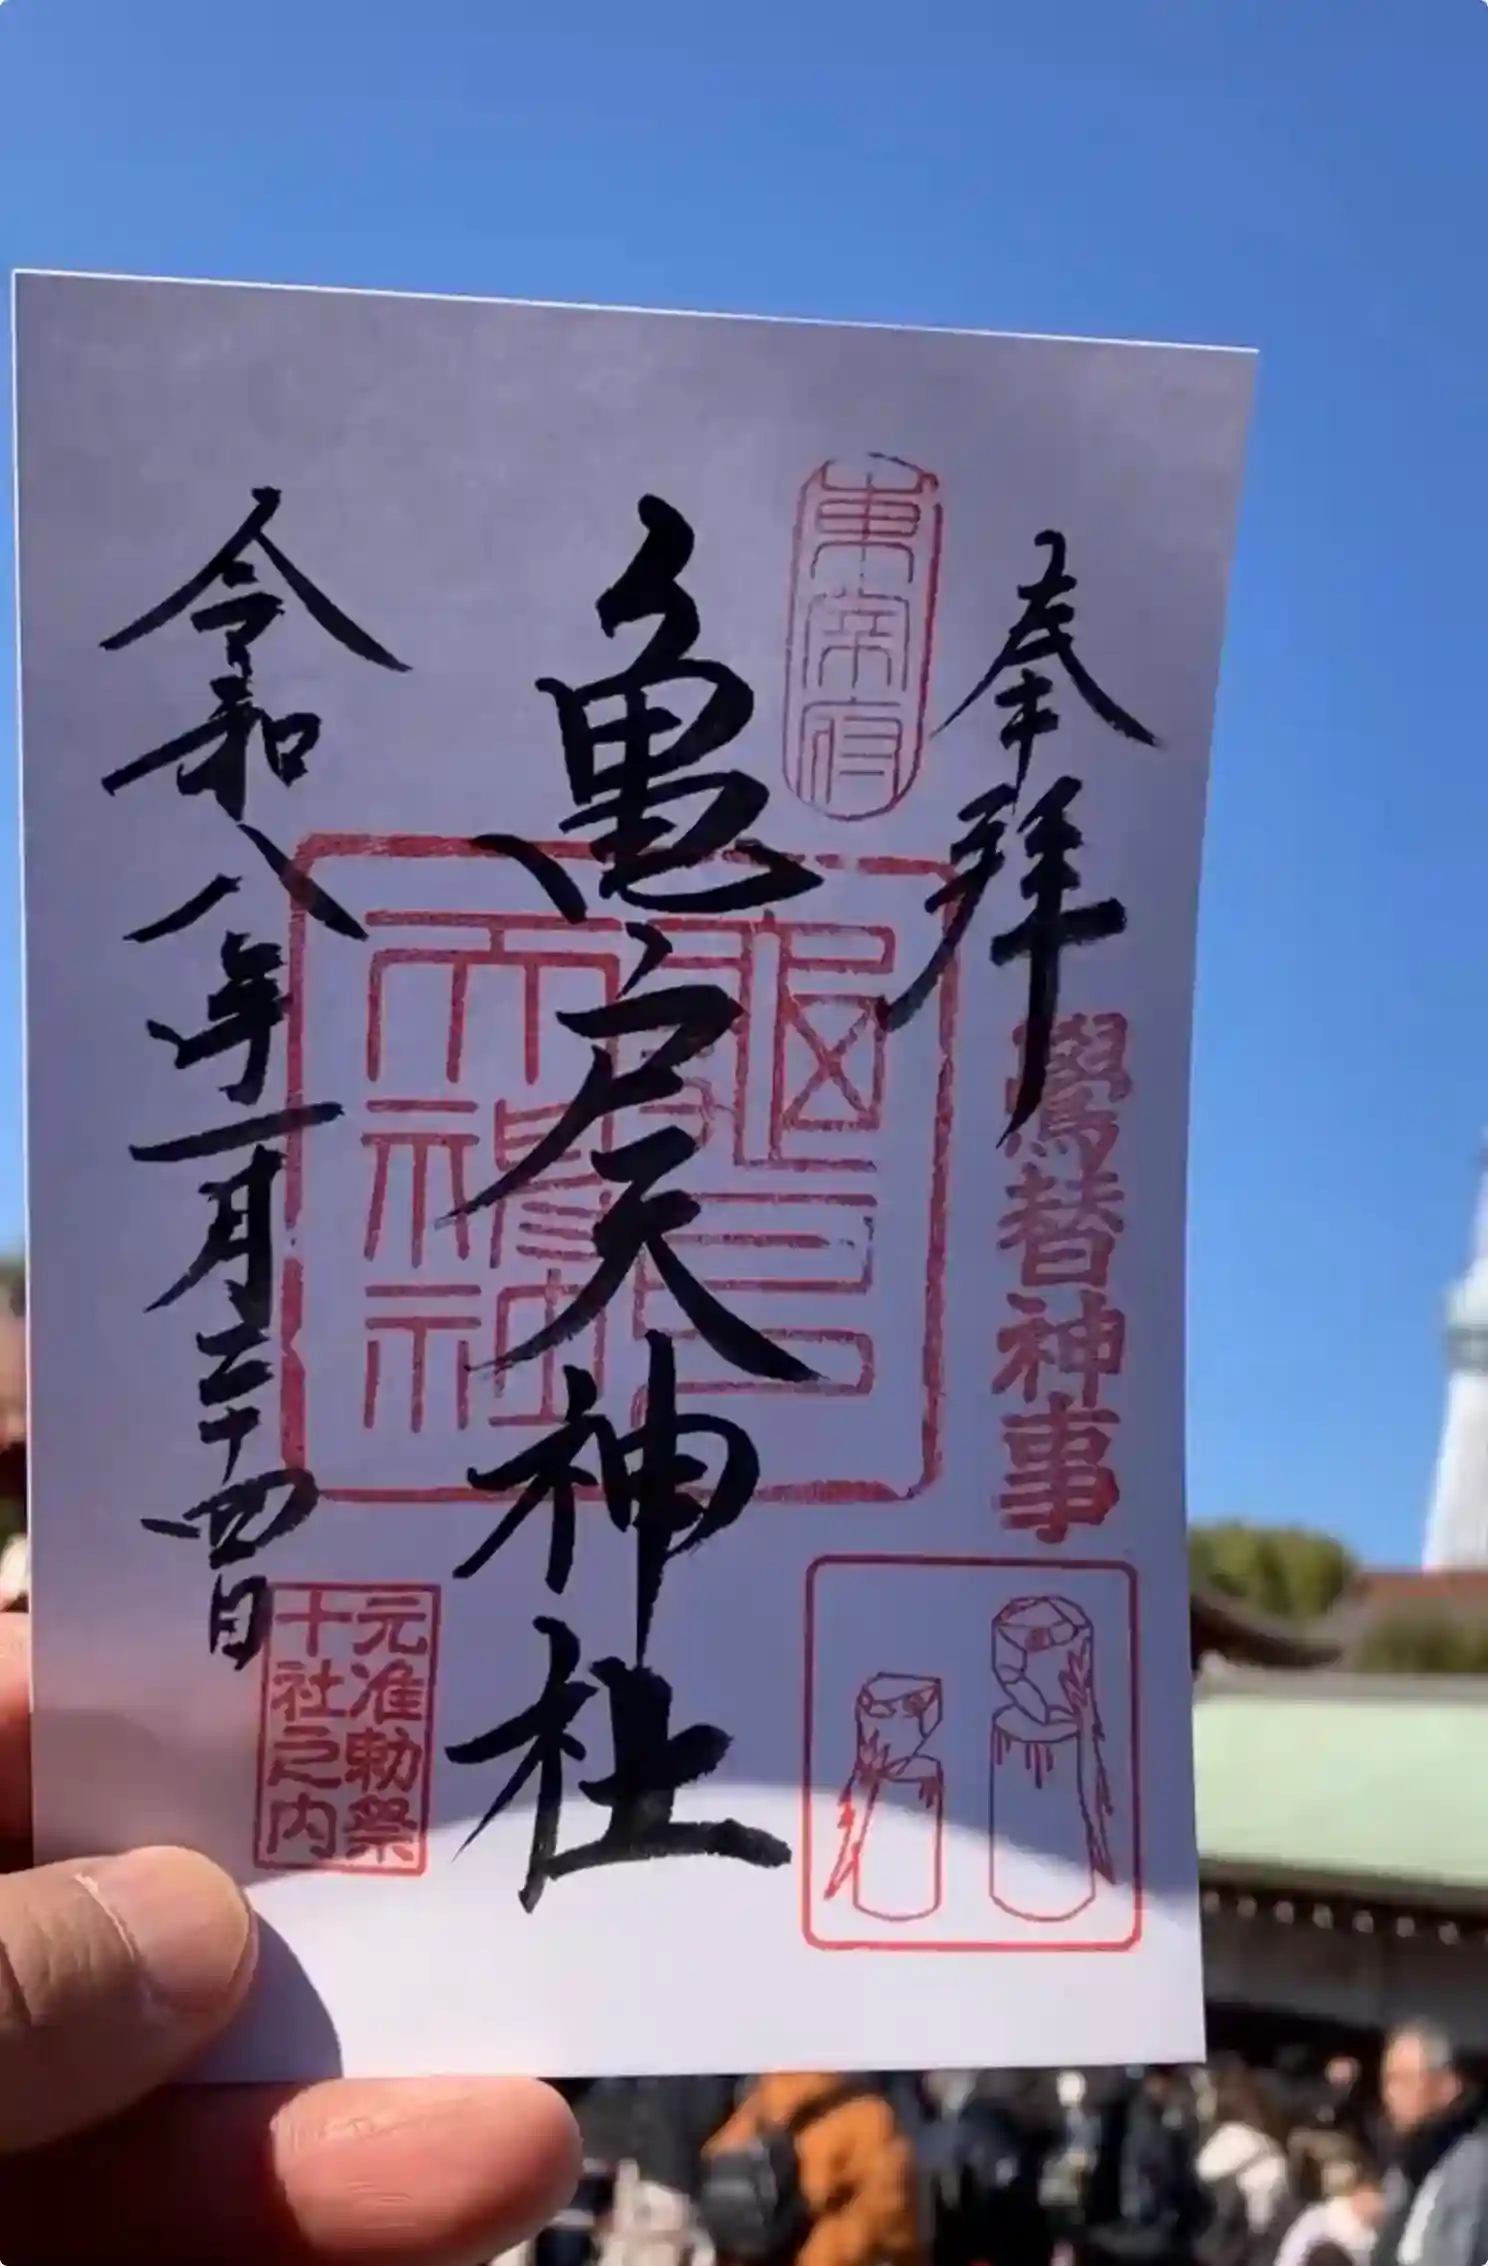 奉拝
鷽替神事
東宰府
亀戸天神社
令和八年一月二十四日
元准勅祭
十社之内